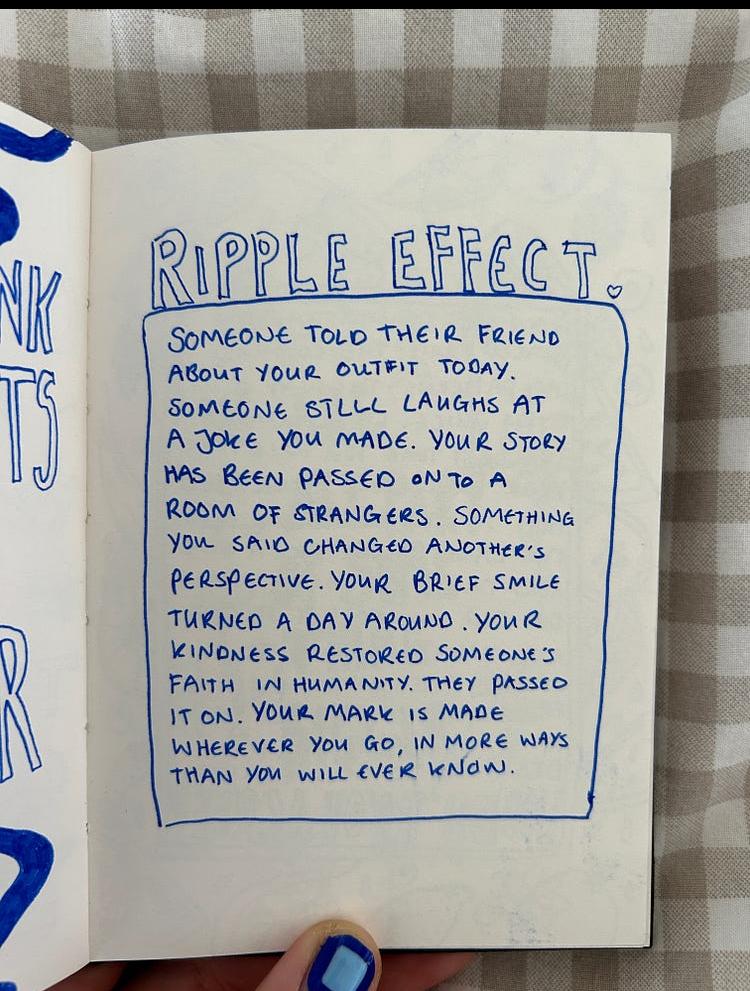 NK
TS
R
RIPPLE EFFECT.
SOMEONE TOLD THEIR FRIEND
ABOUT YOUR OUTFIT TODAY.
SOMEONE STILL LAUGHS AT
A JOKE YOU MADE. YOUR STORY
HAS BEEN PASSED ON TO A
ROOM OF STRANGERS. SOMETHING
YOU SAID CHANGED ANOTHER'S
PERSPECTIVE. YOUR BRIEF SMILE
TURNED A DAY AROUND. YOUR
KINDNESS RESTORED SOMEONE'S
FAITH IN HUMANITY. THEY PASSED
IT ON. YOUR MARK IS MADE
WHEREVER YOU GO, IN MORE WAYS
THAN YOU WILL EVER KNOW.